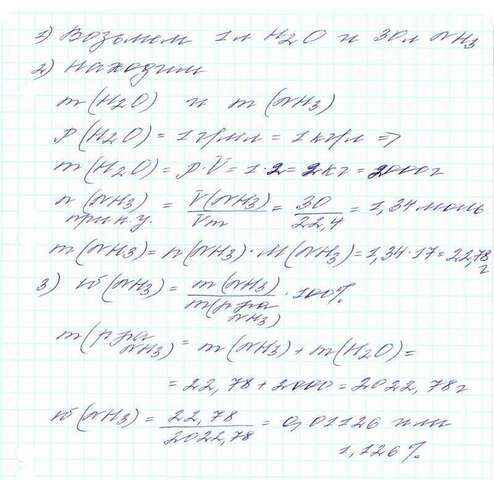 1) Возьмем 1 л H2O и 30 л NH3
2) Находим
m(H2O) и m(NH3)
ρ(H2O) = 1 г/мл = 1 кг/л =>
m(H2O) = ρ·V = 1·2 = 2 кг = 2000 г
n(NH3) при н.у. = V(NH3)/Vm = 30/22,4 = 1,34 моль
m(NH3) = n(NH3)·M(NH3) = 1,34·17 = 22,78 г
3) ω(NH3) = m(NH3)/m(р-ра NH3) · 100%
m(р-ра NH3) = m(NH3) + m(H2O) =
= 22,78 + 2000 = 2022,78 г
ω(NH3) = 22,78/2022,78 = 0,01126 или
1,126%